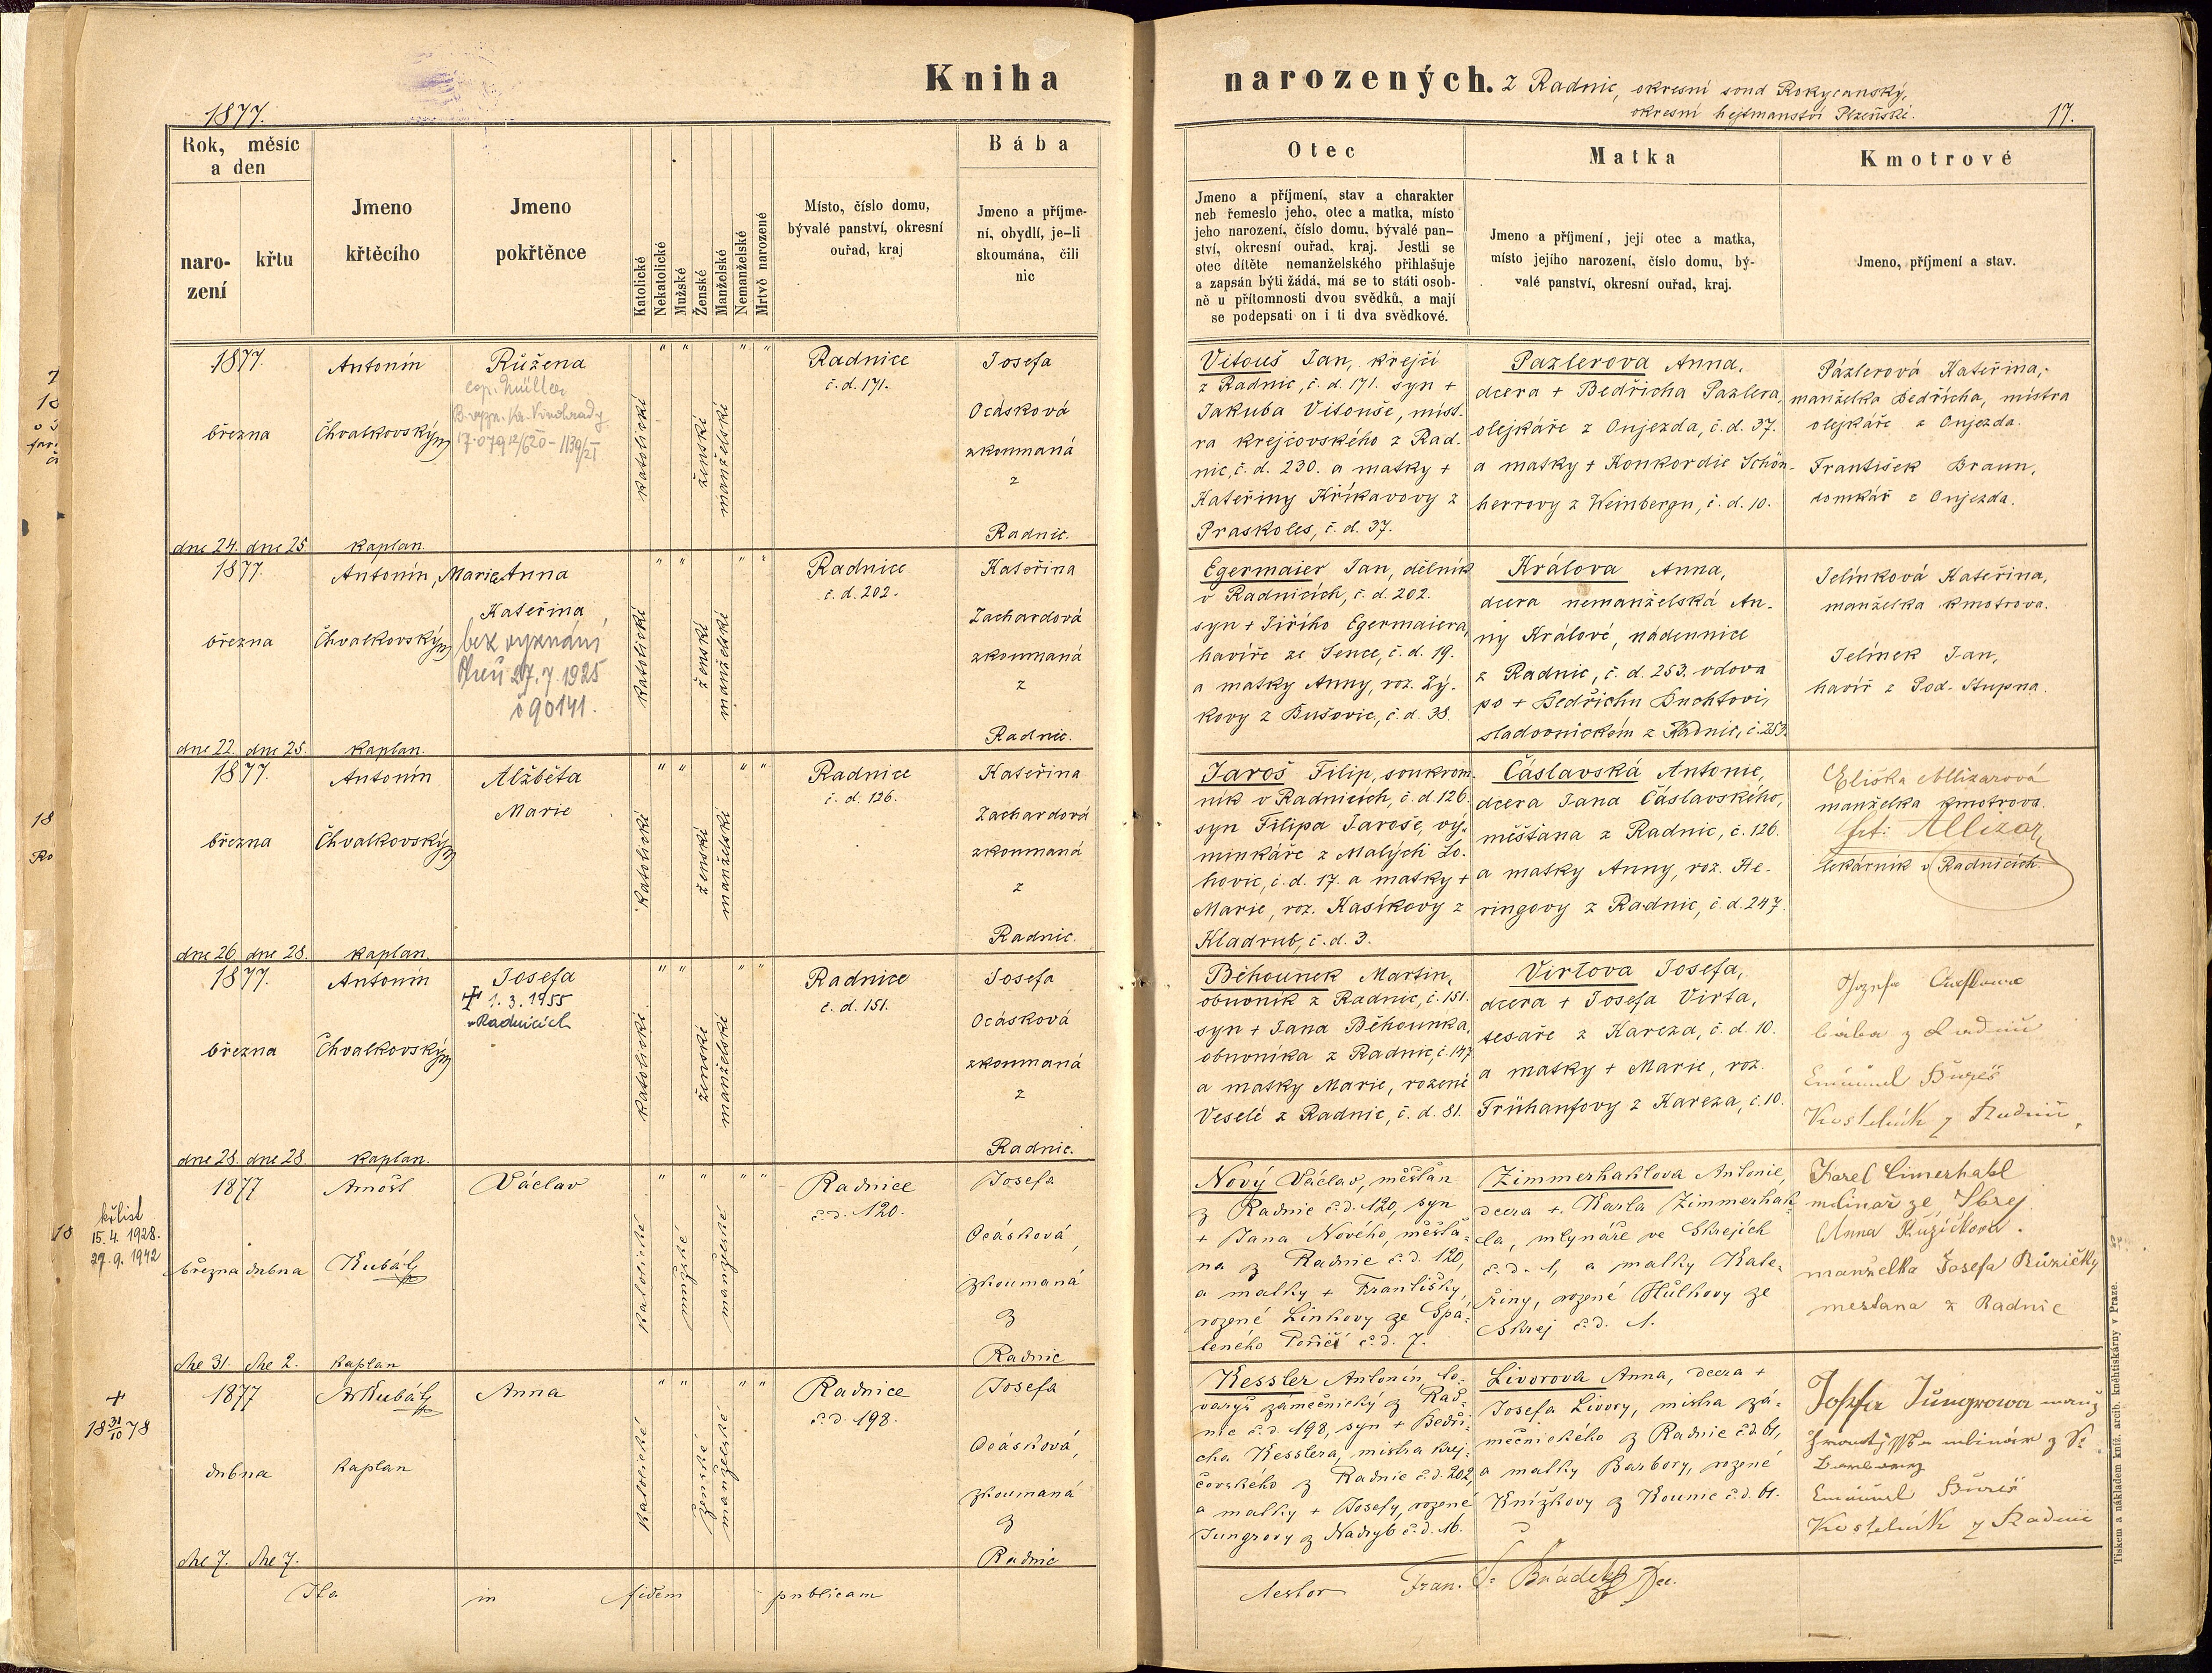 Kniha narozených. z Radnic, okresní soud Rokycanský,
okresní hejtmanství Plzeňské.
1877.
17.
Rok, měsíc
a den
naro-
zení
křtu
Jmeno
křtěcího
Jmeno
pokřtěnce
Katolické
Nekatolické
Mužské
Ženské
Manželské
Nemanželské
Mrtvě narozené
Místo, číslo domu,
bývalé panství, okresní
ouřad, kraj
Bába
Jmeno a příjme-
ní, obydlí, je-li
skoumána, čili
nic
Otec
Jmeno a příjmení, stav a charakter
neb řemeslo jeho, otec a matka, místo
jeho narození, číslo domu, bývalé pan-
ství, okresní ouřad, kraj. Jestli se
otec dítěte nemanželského přihlašuje
a zapsán býti žádá, má se to státi osob-
ně u přítomnosti dvou svědků, a mají
se podepsati on i ti dva svědkové.
Matka
Jmeno a příjmení, její otec a matka,
místo jejího narození, číslo domu, bý-
valé panství, okresní ouřad, kraj.
Kmotrové
Jmeno, příjmení a stav.
1877.
března
dne 24. dne 25.
Antonín
Chvalkovský
kaplan.
Růžena
cop. Müller
katolické
ženské
manželské
Radnice
č. d. 171.
Josefa
Ocásková
zkoumaná
z
Radnic.
Vitouš Jan, krejčí
z Radnic, č. d. 171. syn +
Jakuba Vitouše, mist-
ra krejčovského z Rad-
nic, č. d. 230. a matky +
Kateřiny Křikavovy z
Praskoles, č. d. 37.
Pazlerova Anna,
dcera + Bedřicha Pazlera,
olejkáře z Oujezda, č. d. 37.
a matky + Konkordie Schön-
herrovy z Weinbergu, č. d. 10.
Pázlerová Kateřina,
manželka Bedřicha, mistra
olejkáře z Oujezda.
František Braun,
domkář z Oujezda.
1877.
března
dne 22. dne 25.
Antonín
Chvalkovský
kaplan.
Marie Anna
Kateřina
bez vyznání
27.7.1925
č 90141.
katolické
ženské
manželské
Radnice
č. d. 202.
Kateřina
Zachardová
zkoumaná
z
Radnic.
Egermaier Jan, dělník
v Radnicích, č. d. 202.
syn + Jiřího Egermaiera,
havíře ze Sence, č. d. 19.
a matky Anny, roz. Zý-
kovy z Bušovic, č. d. 38.
Králova Anna,
dcera nemanželská An-
ny Králové, nádennice
z Radnic, č. d. 253. vdova
po + Bedřichu Buchtovi,
sladovnickém z Radnic, č. 253.
Jelínková Kateřina,
manželka kmotrova.
Jelínek Jan,
havíř z Pod-Stupna.
1877.
března
dne 26. dne 28.
Antonín
Chvalkovský
kaplan.
Alžběta
Marie
katolické
ženské
manželské
Radnice
č. d. 126.
Kateřina
Zachardová
zkoumaná
z
Radnic.
Jaroš Filip, soukrom-
ník v Radnicích, č. d. 126.
syn Filipa Jaroše, vý-
minkáře z Malých Lo-
hovic, č. d. 17. a matky +
Marie, roz. Kasíkovy z
Kladrub, č. d. 3.
Čáslavská Antonie,
dcera Jana Čáslavského,
měšťana z Radnic, č. 126.
a matky Anny, roz. He-
ringovy z Radnic, č. d. 247.
Eliška Allizarová
manželka kmotrova.
Allizar
lékárník v Radnicích.
1877.
března
dne 28. dne 28.
Antonín
Chvalkovský
kaplan.
Josefa
+ 1.3.1955
v Radnicích
katolické
ženské
manželské
Radnice
č. d. 151.
Josefa
Ocásková
zkoumaná
z
Radnic.
Běhounek Martin,
obuvník z Radnic, č. 151.
syn + Jana Běhounka,
obuvníka z Radnic, č. 147
a matky Marie, rozené
Veselé z Radnic, č. d. 81.
Virtova Josefa,
dcera + Josefa Virta,
tesaře z Kareza, č. d. 10.
a matky + Marie, roz.
Frühaufovy z Kareza, č. 10.
bába z Radnic
Emanuel Bureš
Kostelník z Radnic
křlist
15.4.1928.
27.9.1942
1877
března dubna
dne 31. dne 2.
Arnošt
Kubát
kaplan
Václav
katolické
mužské
manželské
Radnice
č. d. 120.
Josefa
Ocásková,
zkoumaná
z
Radnic
Nový Václav, měšťan
z Radnic č. d. 120, syn
+ Jana Nového, měšťa-
na z Radnic č. d. 120,
a matky + Františky,
rozené Linhovy ze Spá-
leného Poříčí č. d. 7.
Zimmerhaklova Antonie,
dcera + Karla Zimmerhak-
la, mlynáře ve Skrejích
č. d. 1, a matky Kate-
řiny, rozené Hůlkovy ze
Skrej č. d. 1.
Karel Cimerhakl
mlinař ze Skrej
Anna Ružičkova.
manželka Josefa Růžičky
mestana z Radnic
+
18 31/10 78
1877
dubna
dne 7. dne 7.
Ar Kubát
kaplan
Anna
katolické
ženské
manželské
Radnice
č. d. 198.
Josefa
Ocásková,
zkoumaná
z
Radnic
Kessler Antonín, to-
varyš zámečnický z Rad-
nic č. d. 198, syn + Bedři-
cha Kesslera, mistra krej-
čovského z Radnic č. d. 202,
a matky + Josefy, rozené
Jungrovy z Nadryb č. d. 16.
Livorova Anna, dcera +
Josefa Livory, mistra zá-
mečnického z Radnic č. d. 61,
a matky Barbory, rozené
Knížkovy z Kounic č. d. 61.
Josefa Jüngrowa manž
mlinár z
Emanuel Bureš
Kostelník z Radnic
Ita in fidem publicam
testor Fran.
Tiskem a nákladem kníž. arcib. kněhtiskárny v Praze.